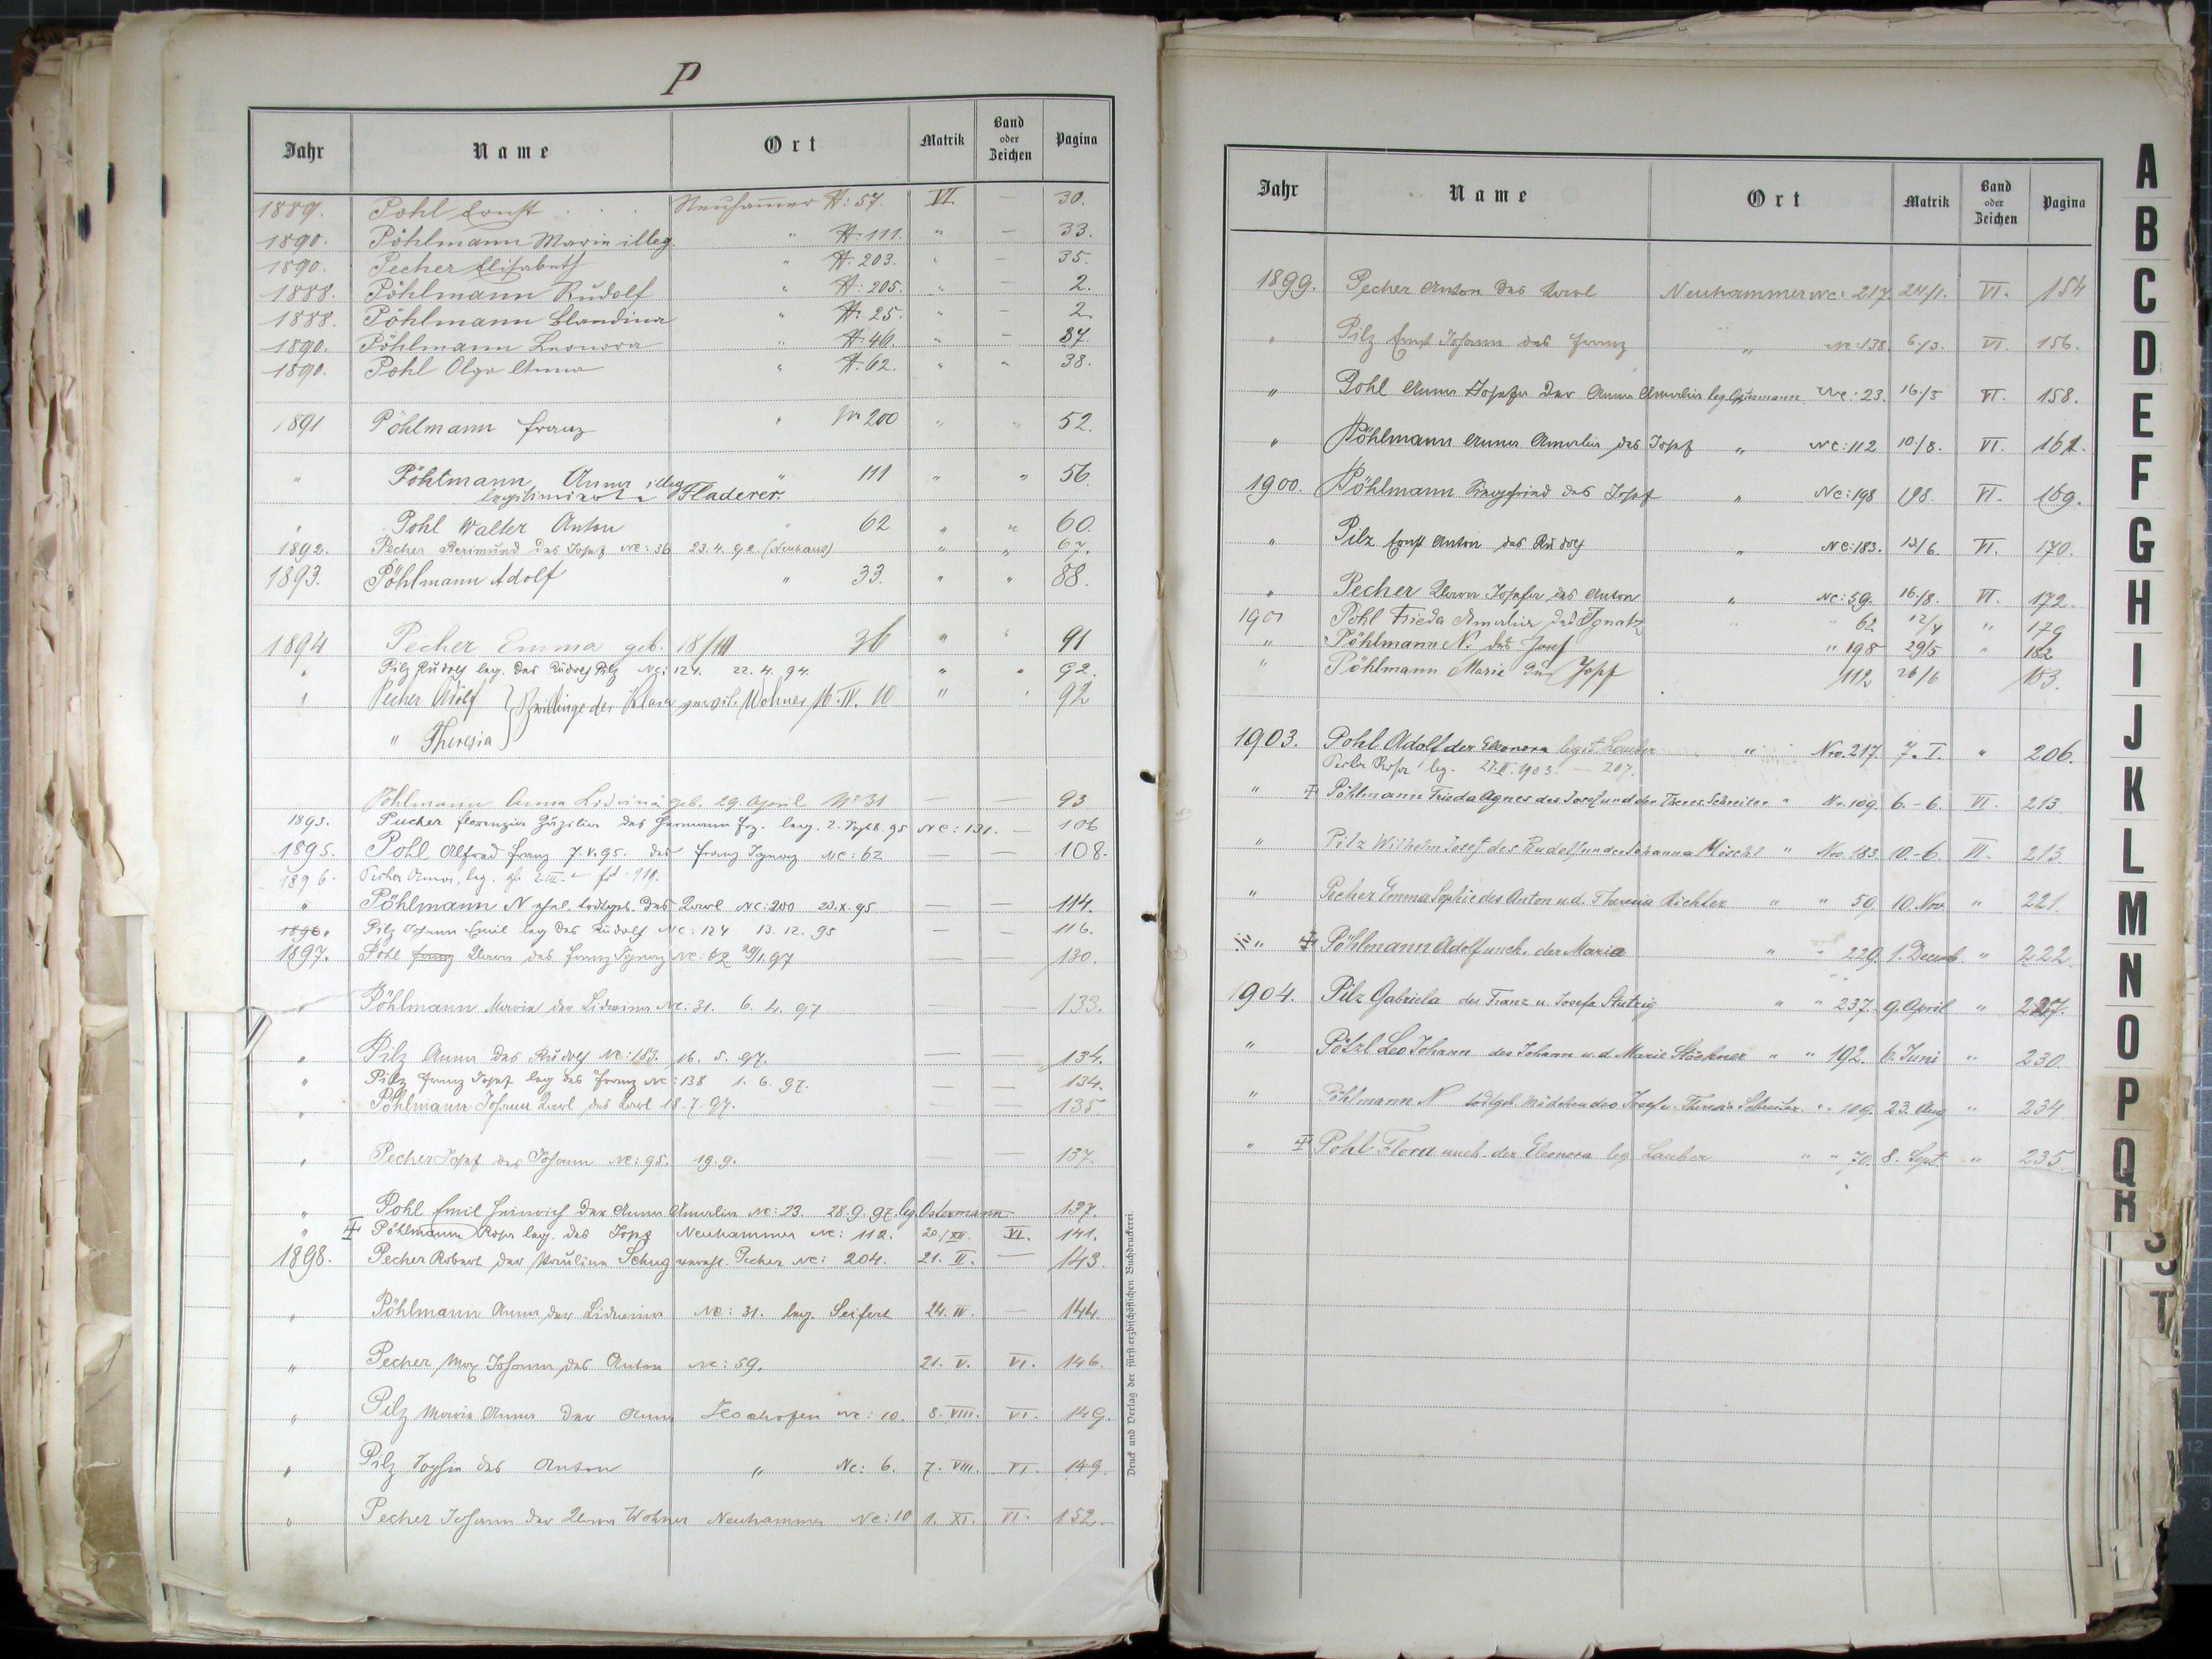 P
Jahr Name Ort Matrik Band oder Zeichen Pagina
1889. Pohl Ernst Neuhammer N: 57. VI — 30.
1890. Pöhlmann Marie illeg. " N: 111. " — 33.
1890. Pecher Elisabeth " N: 203. " — 35.
1888. Pöhlmann Rudolf " N: 205. " — 2.
1888. Pöhlmann Blandina " N: 25. " — 2
1890. Pöhlmann Leonora " N: 46. " — 37.
1890. Pohl Olga Anna " N: 62. " " 38.
1891 Pöhlmann Franz " Nr 200 " " 52.
" Pöhlmann Anna illeg. " 111 " " 56
legitimierte Fladerer
" Pohl Walter Anton " 62 " " 60.
1892. Pecher Raimund des Josef Nc: 36 23. 4. 92 (Neuhaus) " " 67.
1893. Pöhlmann Adolf " 33. " " 88.
1894 Pecher Emma geb. 18/III 36 " " 91
" Pilz Rudolf leg. des Rudolf Pilz Nc: 124. 22. 4. 94. " " 92.
" Pecher Adolf } Zwillinge der Klara verehl. Wohner 16. IV. 10 " " 92
" Theresia
Pöhlmann Anna Lidwina geb. 29. April No 31 — — 93
1895. Pucher Florenzia Zäzilia des Hermann Frz. leg. 2. Septb. 95 Nc: 131. — 106
1895. Pohl Alfred Franz 7. V. 95. des Franz Ignaz Nc: 62 — 108.
1896. Pecher Anna, leg.
" Pöhlmann N ehel. todtgeb. des Karl Nc: 200 23. X. 95 — — 114.
1896. Pilz Johann Emil leg des Rudolf Nc: 124 13. 12. 95 — — 116.
1897. Pohl Franz Klara des Franz Ignaz Nc: 62 — — 130.
" Pöhlmann Maria der Lidwina Nc: 31. 6. 4. 97 — — 133.
" Pilz Anna des Rudolf Nc: 183. 16. 5. 97. — — 134.
" Pilz Franz Josef leg des Franz Nc: 138 1. 6. 97. — — 134.
" Pöhlmann Johann Karl des Karl 18. 7. 97. — — 135
" Pecher Josef des Johann Nc: 95. 19. 9. — — 137.
" Pohl Emil Heinrich der Anna Amalia Nc: 23. 28. 9. 97. leg. Ostermann 137.
" Pöhlmann Rosa leg. des Josef Neuhammer Nc: 112. 20./XII. VI. 141.
1898. Pecher Robert der Paulina Schug verehl. Pecher Nc: 204. 21. II. — 143.
" Pöhlmann Anna der Lidwina Nc: 31. leg. Seifert 24. IV. — 144.
" Pecher Max Johann des Anton Nc: 59. 21. V. VI. 146.
" Pilz Maria Anna der Anna Nc: 10. 8. VIII. VI. 149.
" Pilz Sophie des Anton " Nc: 6. 7. VIII. VI. 149.
" Pecher Johann der Klara Wohner Neuhammer Nc: 10 1. XI. VI. 152.
Druck und Verlag der fürst-erzbischöflichen Buchdruckerei.
Jahr Name Ort Matrik Band oder Zeichen Pagina
1899. Pecher Anton des Karl Neuhammer Nc: 217. 24/1. VI. 154
" Pilz Ernst Johann des Franz " Nc: 138. 6./3. VI. 156.
" Pohl Anna Josefa der Anna Amalia leg. Ostermann Nc: 23. 16./5 VI. 158.
" Pöhlmann Anna Amalia des Josef " Nc: 112 10/8. VI. 161.
1900. Pöhlmann Siegfried des Josef " Nc: 198 VI. 169.
" Pilz Ernst Anton des Rudolf " Nc: 183. 13/6. VI. 170.
" Pecher Klara Josefa des Anton " Nc: 59. 16./8. VI. 172.
1901 Pohl Frieda Amalia des Ignatz " " 62 12/4 " 179
" Pöhlmann N. des Josef " 198 29/5 " 182
" Pöhlmann Marie des Josef 112 26/6 183.
1903. Pohl Adolf der Eleonora legit. Lauber " Nro. 217. 7. I. " 206.
Pecher Rosa leg. 27. II. 1903. — 207.
" Pöhlmann Frieda Agnes des Josef und der Theres. Schreiter " Nr. 109. 6. - 6. VI. 213
" Pilz Wilhelm Josef des Rudolf un der Johanna Möschl " Nro 183. 10. - 6. VI. 213
" Pecher Emma Sophie des Anton u.d. Theresia Richter " " 59. 10. Nov. " 221.
" Pöhlmann Adolf uneh. der Maria " " 229. 1. Decemb. " 222.
1904. Pilz Gabriela des Franz u. Josefa Stutzig " " 237. 9. April "
" Pötzl Leo Johann des Johann u. d. Marie Stöckner " " 192. 6. Juni " 230.
" Pöhlmann N todtgeb. Mädchen des Josef u. Theresia Schreiter " 109. 23. Aug " 234
" Pohl Flora uneh. der Eleonora leg. Lauber " " 70. 8. Sept. " 235.
A
B
C
D
E
F
G
H
I
J
K
L
M
N
O
P
Q
R
S
T